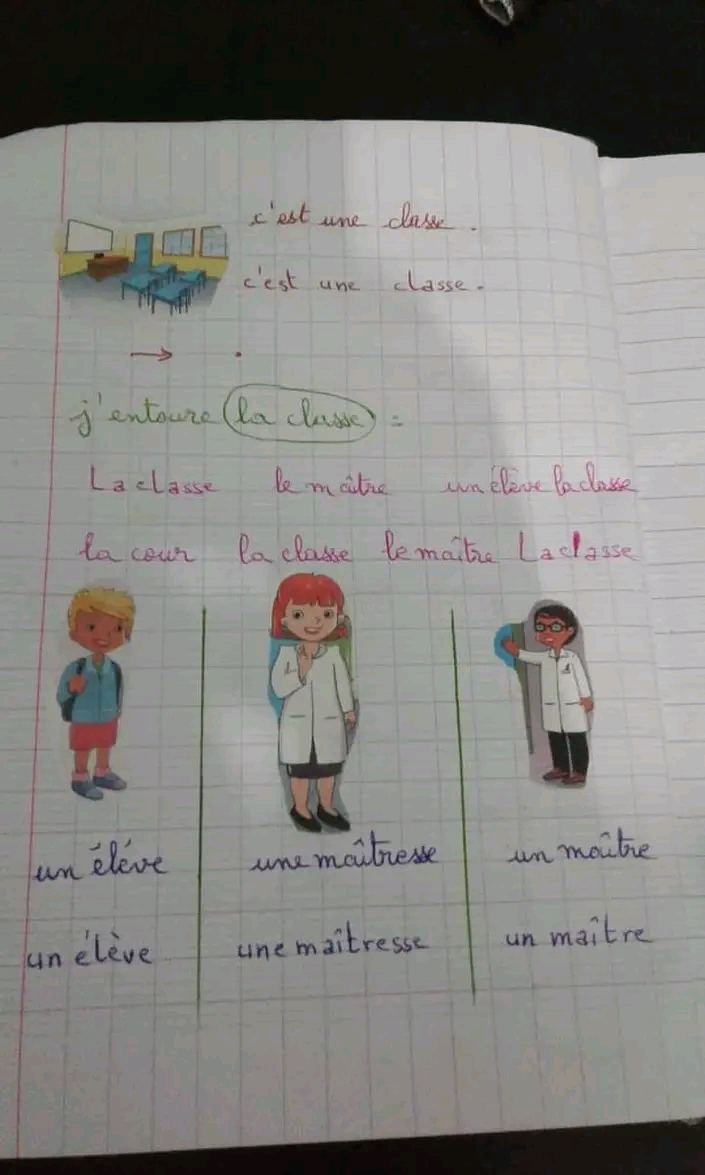 c'est une classe.
c'est une classe.
→ .
j'entoure la classe =
La classe le maître un élève la classe
la cour la classe le maître La classe
un éléve une maîtresse un maître
un élève une maîtresse un maître